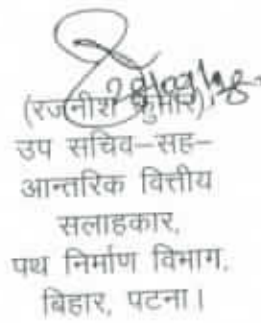 (रजनीश कुमार)
उप सचिव-सह-
आन्तरिक वित्तीय
सलाहकार,
पथ निर्माण विभाग,
बिहार, पटना।